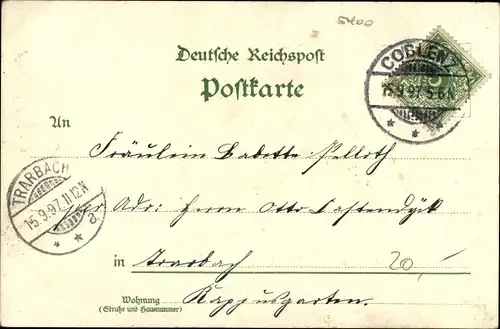 5400
Deutsche Reichspost
Postkarte
COBLENZ
15.9.97. 5-6N
An
Fräulein Babette Pelloth
TRARBACH
15.9.97. 11-12N
a.
per Adr: Herrn Otto Castendyk
in Trarbach
20,-
Wohnung
(Straße und Hausnummer)
Kappusgarten.